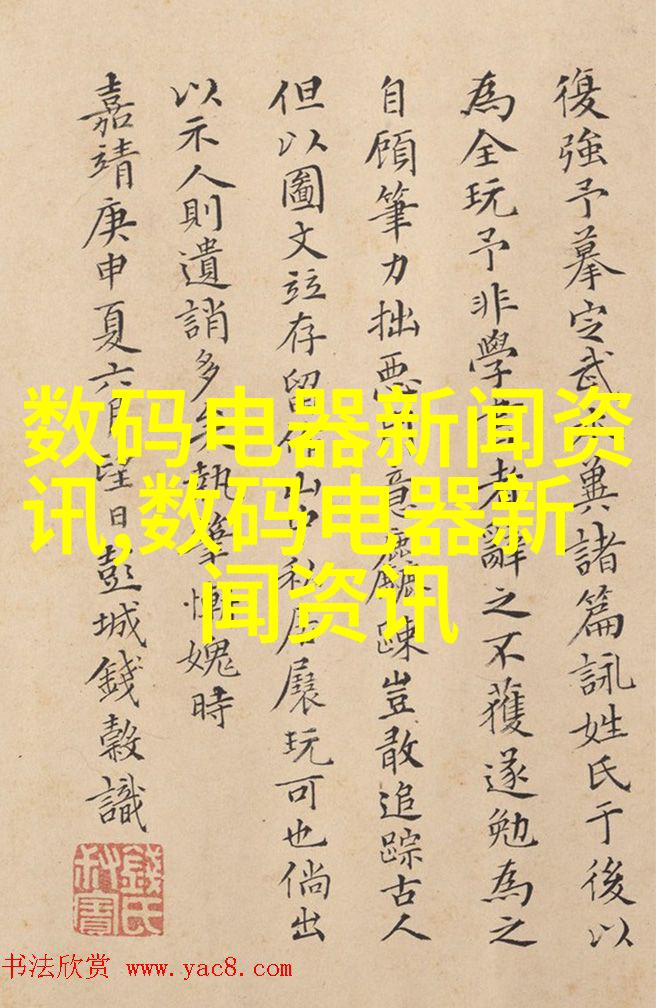 復強予摹定武
蘭諸篇詠姓氏于後以
為全玩予非學
者辭之不獲遂勉為之
自顧筆力拙惡
意麤踈豈敢追踪古人
但以圖文竝存留
山
私居展玩可也倘出
以示人則遺誚多矣執筆
愧時
嘉靖庚申夏六月望日彭城錢穀識
数码电器新闻资
讯,数码电器新
闻资讯
錢氏
书法欣赏 www.yac8.com